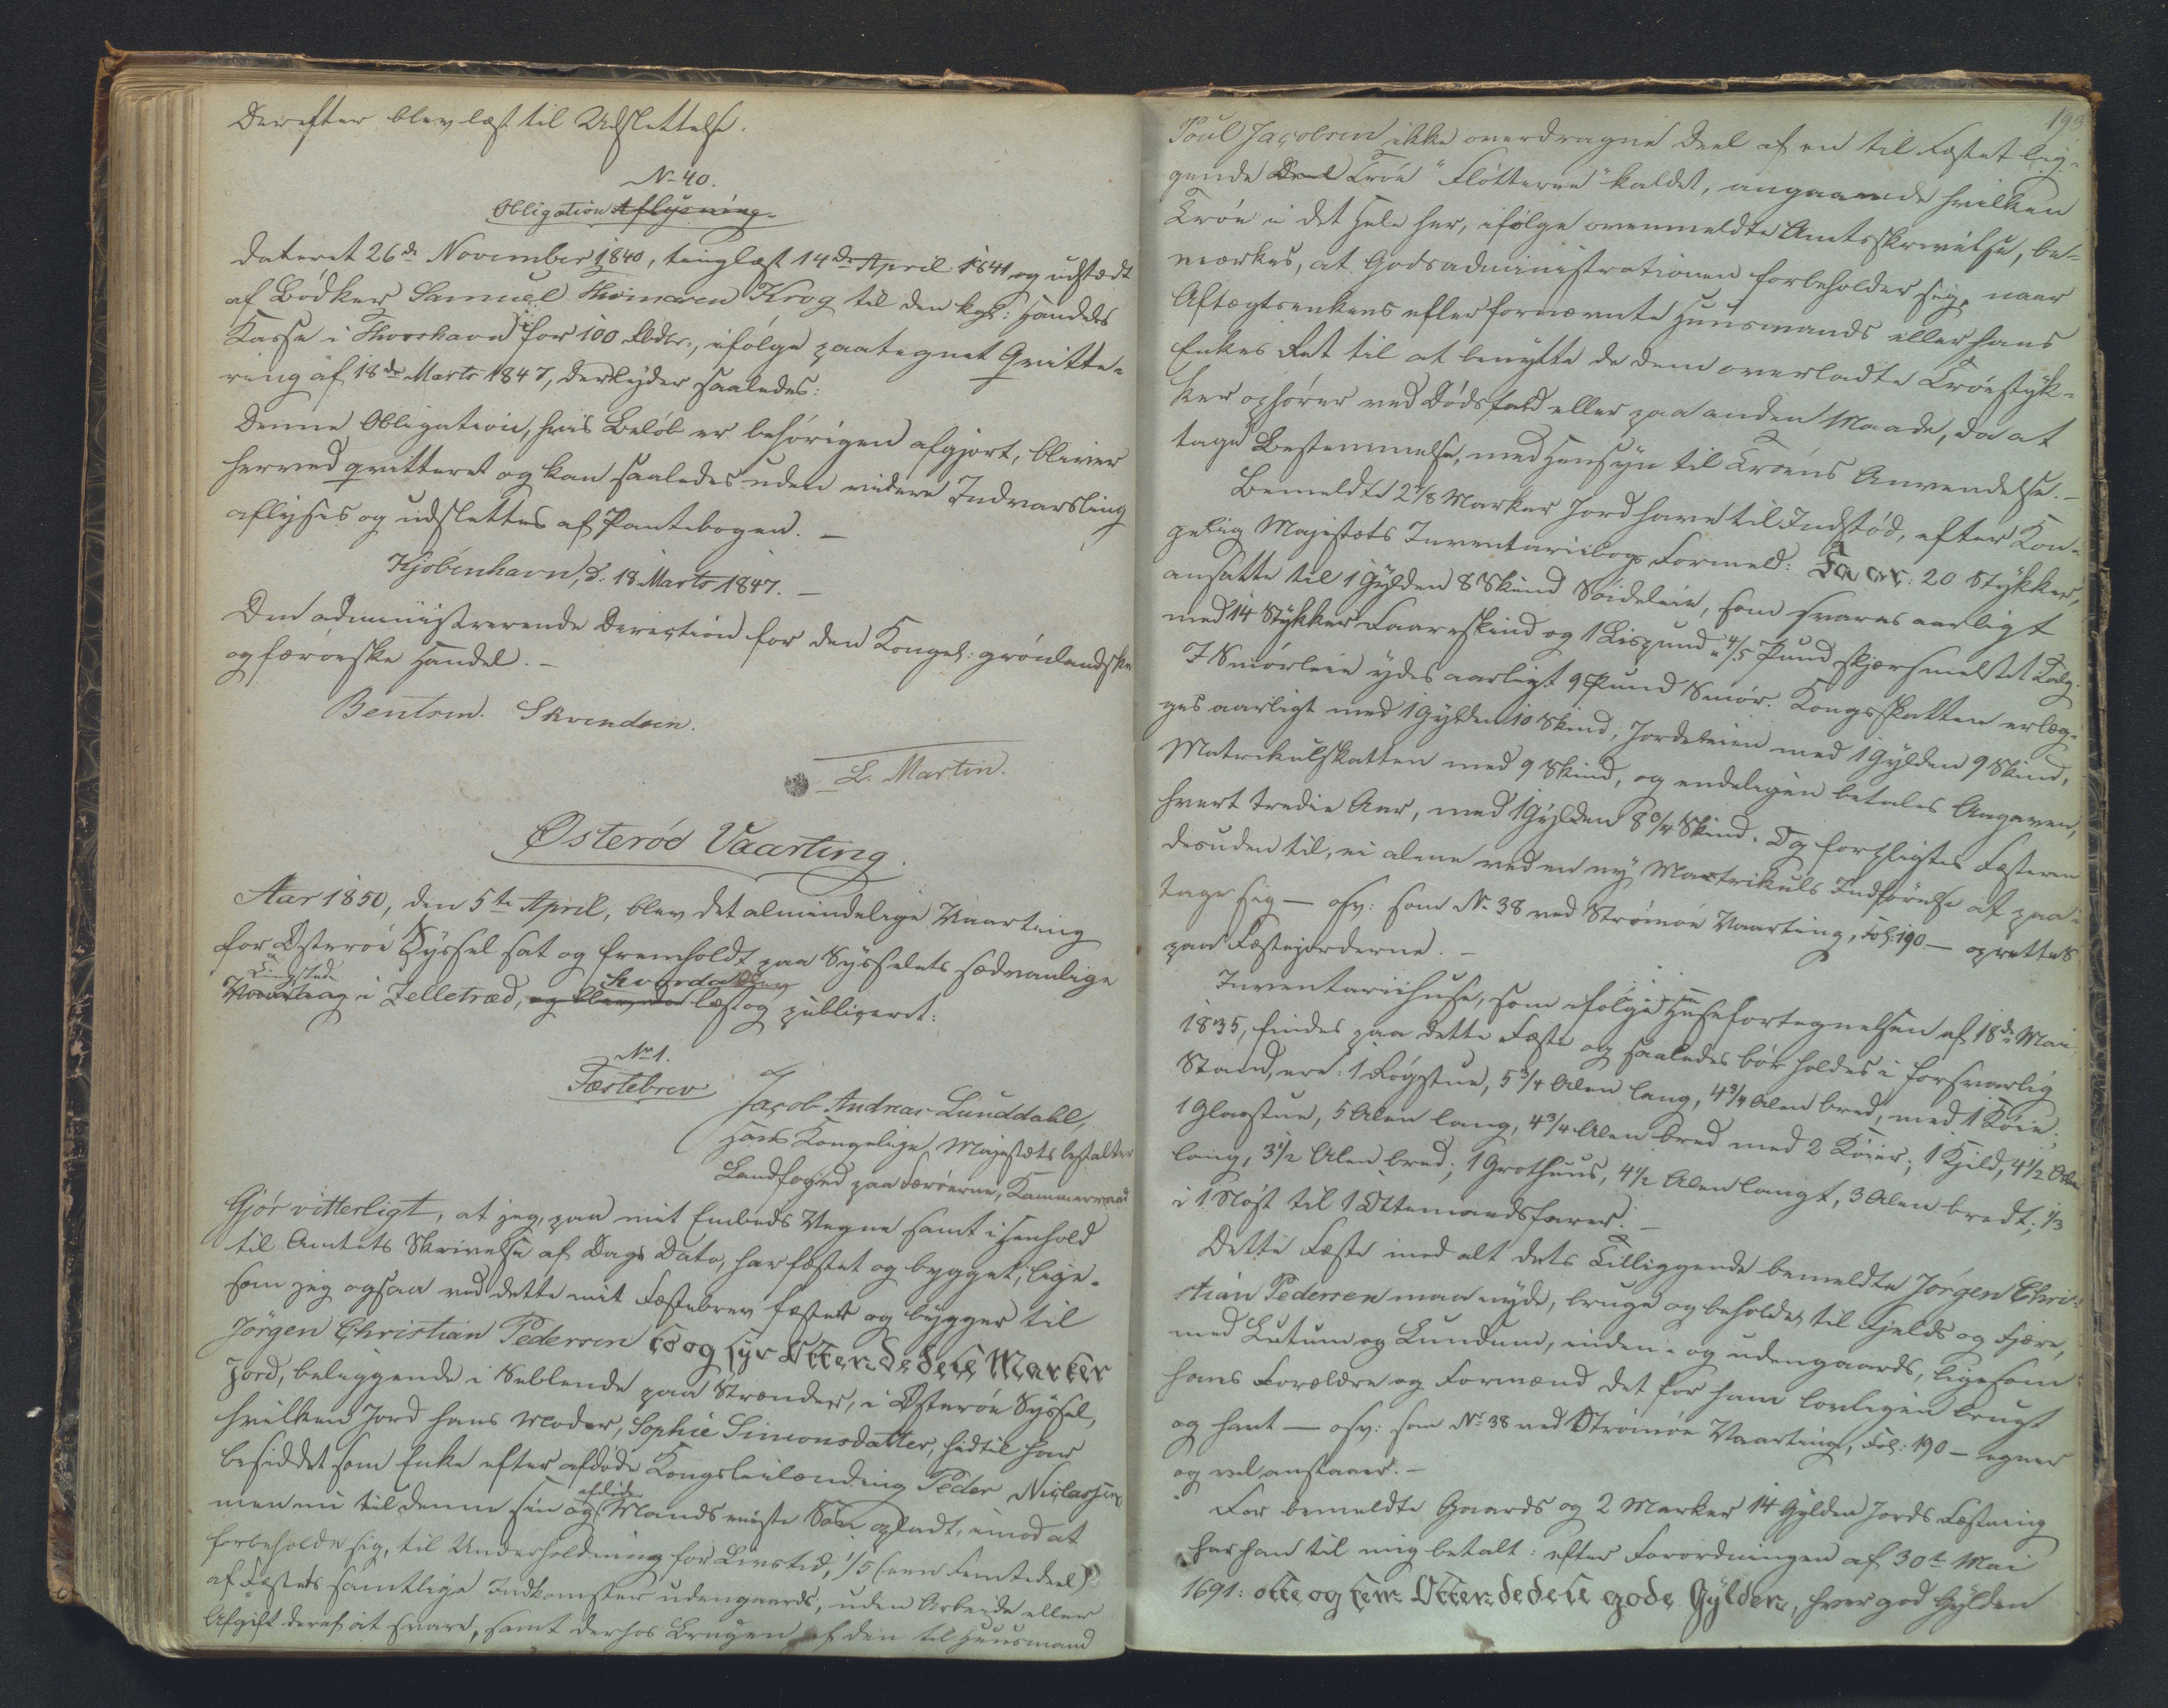 Derefter blev læst til Udslettelse.
No 40.
Obligation Aflysning.
dateret 26de November 1840, tinglæst 14de April 1841, og udstedt
af Bødker Samuel Thomasen Krog til den kgl: Handels
Kasse i Thorshavn for 100 Rbdlr., ifølge paategnet Qvitte-
ring af 18de Marts 1847, der lyder saaledes:
Denne Obligation, hvis Beløb er behørigen afgjort, bliver
herved qvitteret og kan saaledes uden videre Indvarsling
aflyses og udslettes af Pantebogen. —
Kjøbenhavn, d. 18 Marts 1847. —
Den administrerende Direction for den Kongel: grønlandske
og færøeske Handel. —
Bentsen. Svendsen.
L. Martin.
Østerøe Vaarting.
Aar 1850, den 5te April, blev det almindelige Vaarting
for Østerøe Syssel sat og fremholdt paa Sysselets sædvanlige
Tingstede hvorda blev
Vaarting i Zelletræd, og blev da læst og publiceret:
No 1.
Fæstebrev
Jacob Andreas Lunddahl,
Hans Kongelige Majestæts bestalter
Landfoged paa Færøerne, Kammerraad
Gjør vitterligt, at jeg, paa mit Embeds Vegne samt i Henhold
til Amtets Skrivelse af Dags Dato, har fæstet og bygget, lige-
som jeg ogsaa ved dette mit Fæstebrev fæster og bygger til
Jørgen Christian Pedersen to og syv Ottendedele Marker
Jord, beliggende i Neblende paa Strænder, i Østerøe Syssel,
hvilken Jord hans Moder, Sophie Simonsdatter, hidtil har
besiddet som Enke efter afdøde Kongsleilænding Peder Niclassen
afdøde
men nu til denne sin og Mands ringste Søn opladt, imod at
forbeholde sig, til Underholdning for Livstid, 1/5 (een Femtedeel)
af Fæstets samtlige Indkomster udengaards, uden Arbeide eller
Afgift deraf at svare, samt derhos Brugen af den til Huusmand
193
Poul Jacobsen ikke overdragne Deel af en til Fæstet lig-
gende Deel Trøe "Fløtterne" kaldet, angaaende hvilken
Trøe i det Hele her, ifølge ovenmeldte Amtsskrivelse, be-
mærkes, at Godsadministrationen forbeholder sig, naar
Aftægtsenkens eller fornævnte Huusmands eller hans
Enkes Ret til at benytte de dem overladte Trøestyk-
ker ophører ved Dødsfald eller paa anden Maade, da at
tage Bestemmelse, med Hensyn til Trøens Anvendelse. —
Bemeldte 2 7/8 Marker Jord have til Indstød, efter Kon-
gelig Majestæts Inventariibogs Formeld: Faar: 20 Stykker,
ansatte til 1 Gylden 8 Skind Søideleie, som svares aarligt
med 14 Stykker Faareskind og 1 Lispund 4/5 Pund skjørsmeltet Talg.
I Smørleie ydes aarligt 9 Pund Smør. Kongsskatten erlæg-
ges aarligt med 1 Gylden 10 Skind, Jordeleien med 1 Gylden 9 Skind,
Matrikulskatten med 9 Skind, og endeligen betales Aagaven,
hvert tredie Aar, med 1 Gylden 8 3/4 Skind. Og forpligtes Fæsteren
desuden til, ei alene ved en ny Matrikuls Indførelse at paa-
tage sig — osv: som No 38 ved Strømøe Vaarting, Fol: 190 — oprettes
paa Fæstejorderne. —
Inventariihuse, som ifølge Husefortegnelsen af 18de Mai
1835, findes paa dette Fæste og saaledes bør holdes i forsvarlig
Stand, ere: 1 Røgstue, 5 3/4 Alen lang, 4 3/4 Alen bred, med 1 Køie;
1 Glasstue, 5 Alen lang, 4 3/4 Alen bred med 2 Køier; 1 Kjeld, 4 1/2 Alen
lang, 3 1/2 Alen bred; 1 Grothuus, 4 1/2 Alen langt, 3 Alen bredt; 1/3
i 1 Nøst til 1 Ottemandsfarer. —
Dette Fæste med alt dets Tilliggende bemeldte Jørgen Chri-
stian Pedersen maa nyde, bruge og beholde, til Fjelds og Fjære,
med Lutum og Lundum, inden- og udengaards, ligesom
hans Forældre og Formænd det før ham lovligen brugt
og havt — osv: som No 38 ved Strømøe Vaarting, Fol: 190 — egner
og vel anstaaer. —
For bemeldte Gaards og 2 Marker 14 Gylden Jords Fæstning
har han til mig betalt: efter Forordningen af 30te Mai
1691: otte og fem Ottendedele gode Gylden, hver god Gylden